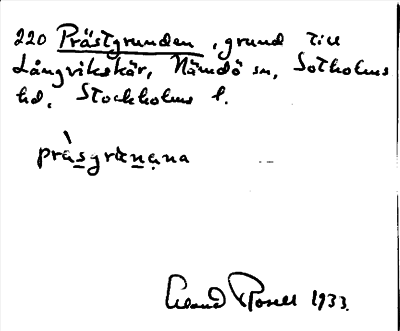 220 Prästgrunden, grund till
Långvikskär, Nämdö sn, Sotholms
hd, Stockholms l.
Erland Rosell 1933.